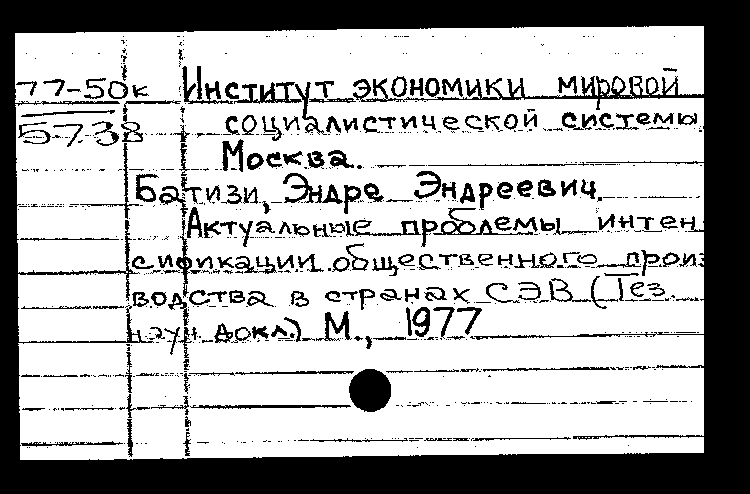 77-50к Институт экономики мировой
5738 социалистической системы
Москва.
Батизи, Эндре Эндреевич.
Актуальные проблемы интен
сификации общественного произ
водства в странах СЭВ (Тез.
науч. докл.) М., 1977